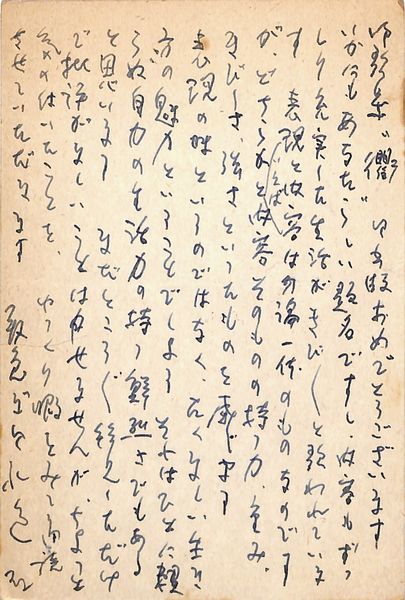 御歌集、御出版おめでとうございます
いかにもあなたらしい題名ですし、内容もずっ
しり充実した生活がきびしく歌われていま
す 表現と内容は勿論一体のものなのです
が、どちらかといえば内容そのものの持つ力、重み、
きびしさ、強さといったものを感じます
表現の味というのではなく、たくましい生き
方の魅力ということでしょう それはひとに頼
らぬ自力の生活力の持つ鮮烈さでもある
と思います まだところどころ拝見しただけ
で批評がましいことは申せませんが、ちょっと
気の付いたことを、ゆっくり暇をみて再読
させていただきます